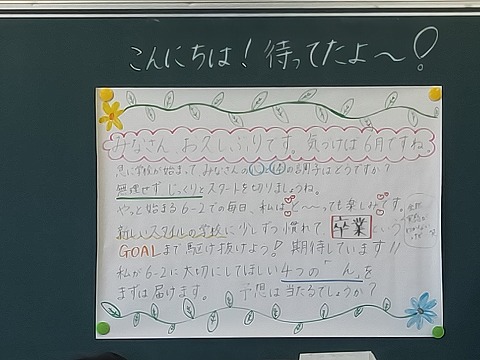 こんにちは！待ってたよ〜！
みなさん、お久しぶりです。気づけば6月ですね。
急に学校が始まって、みなさんの心と体の調子はどうですか？
無理せずじっくりとスタートを切りましょうね。
やっと始まる6-2での毎日、私はと〜っても楽しみです。
新しいスタイルの学校に少しずつ慣れて、卒業という
GOALまで駆け抜けよう！期待しています!!
私が6-2に大切にしてほしい4つの「ん」を
まずは届けます。 予想は当たるでしょうか？